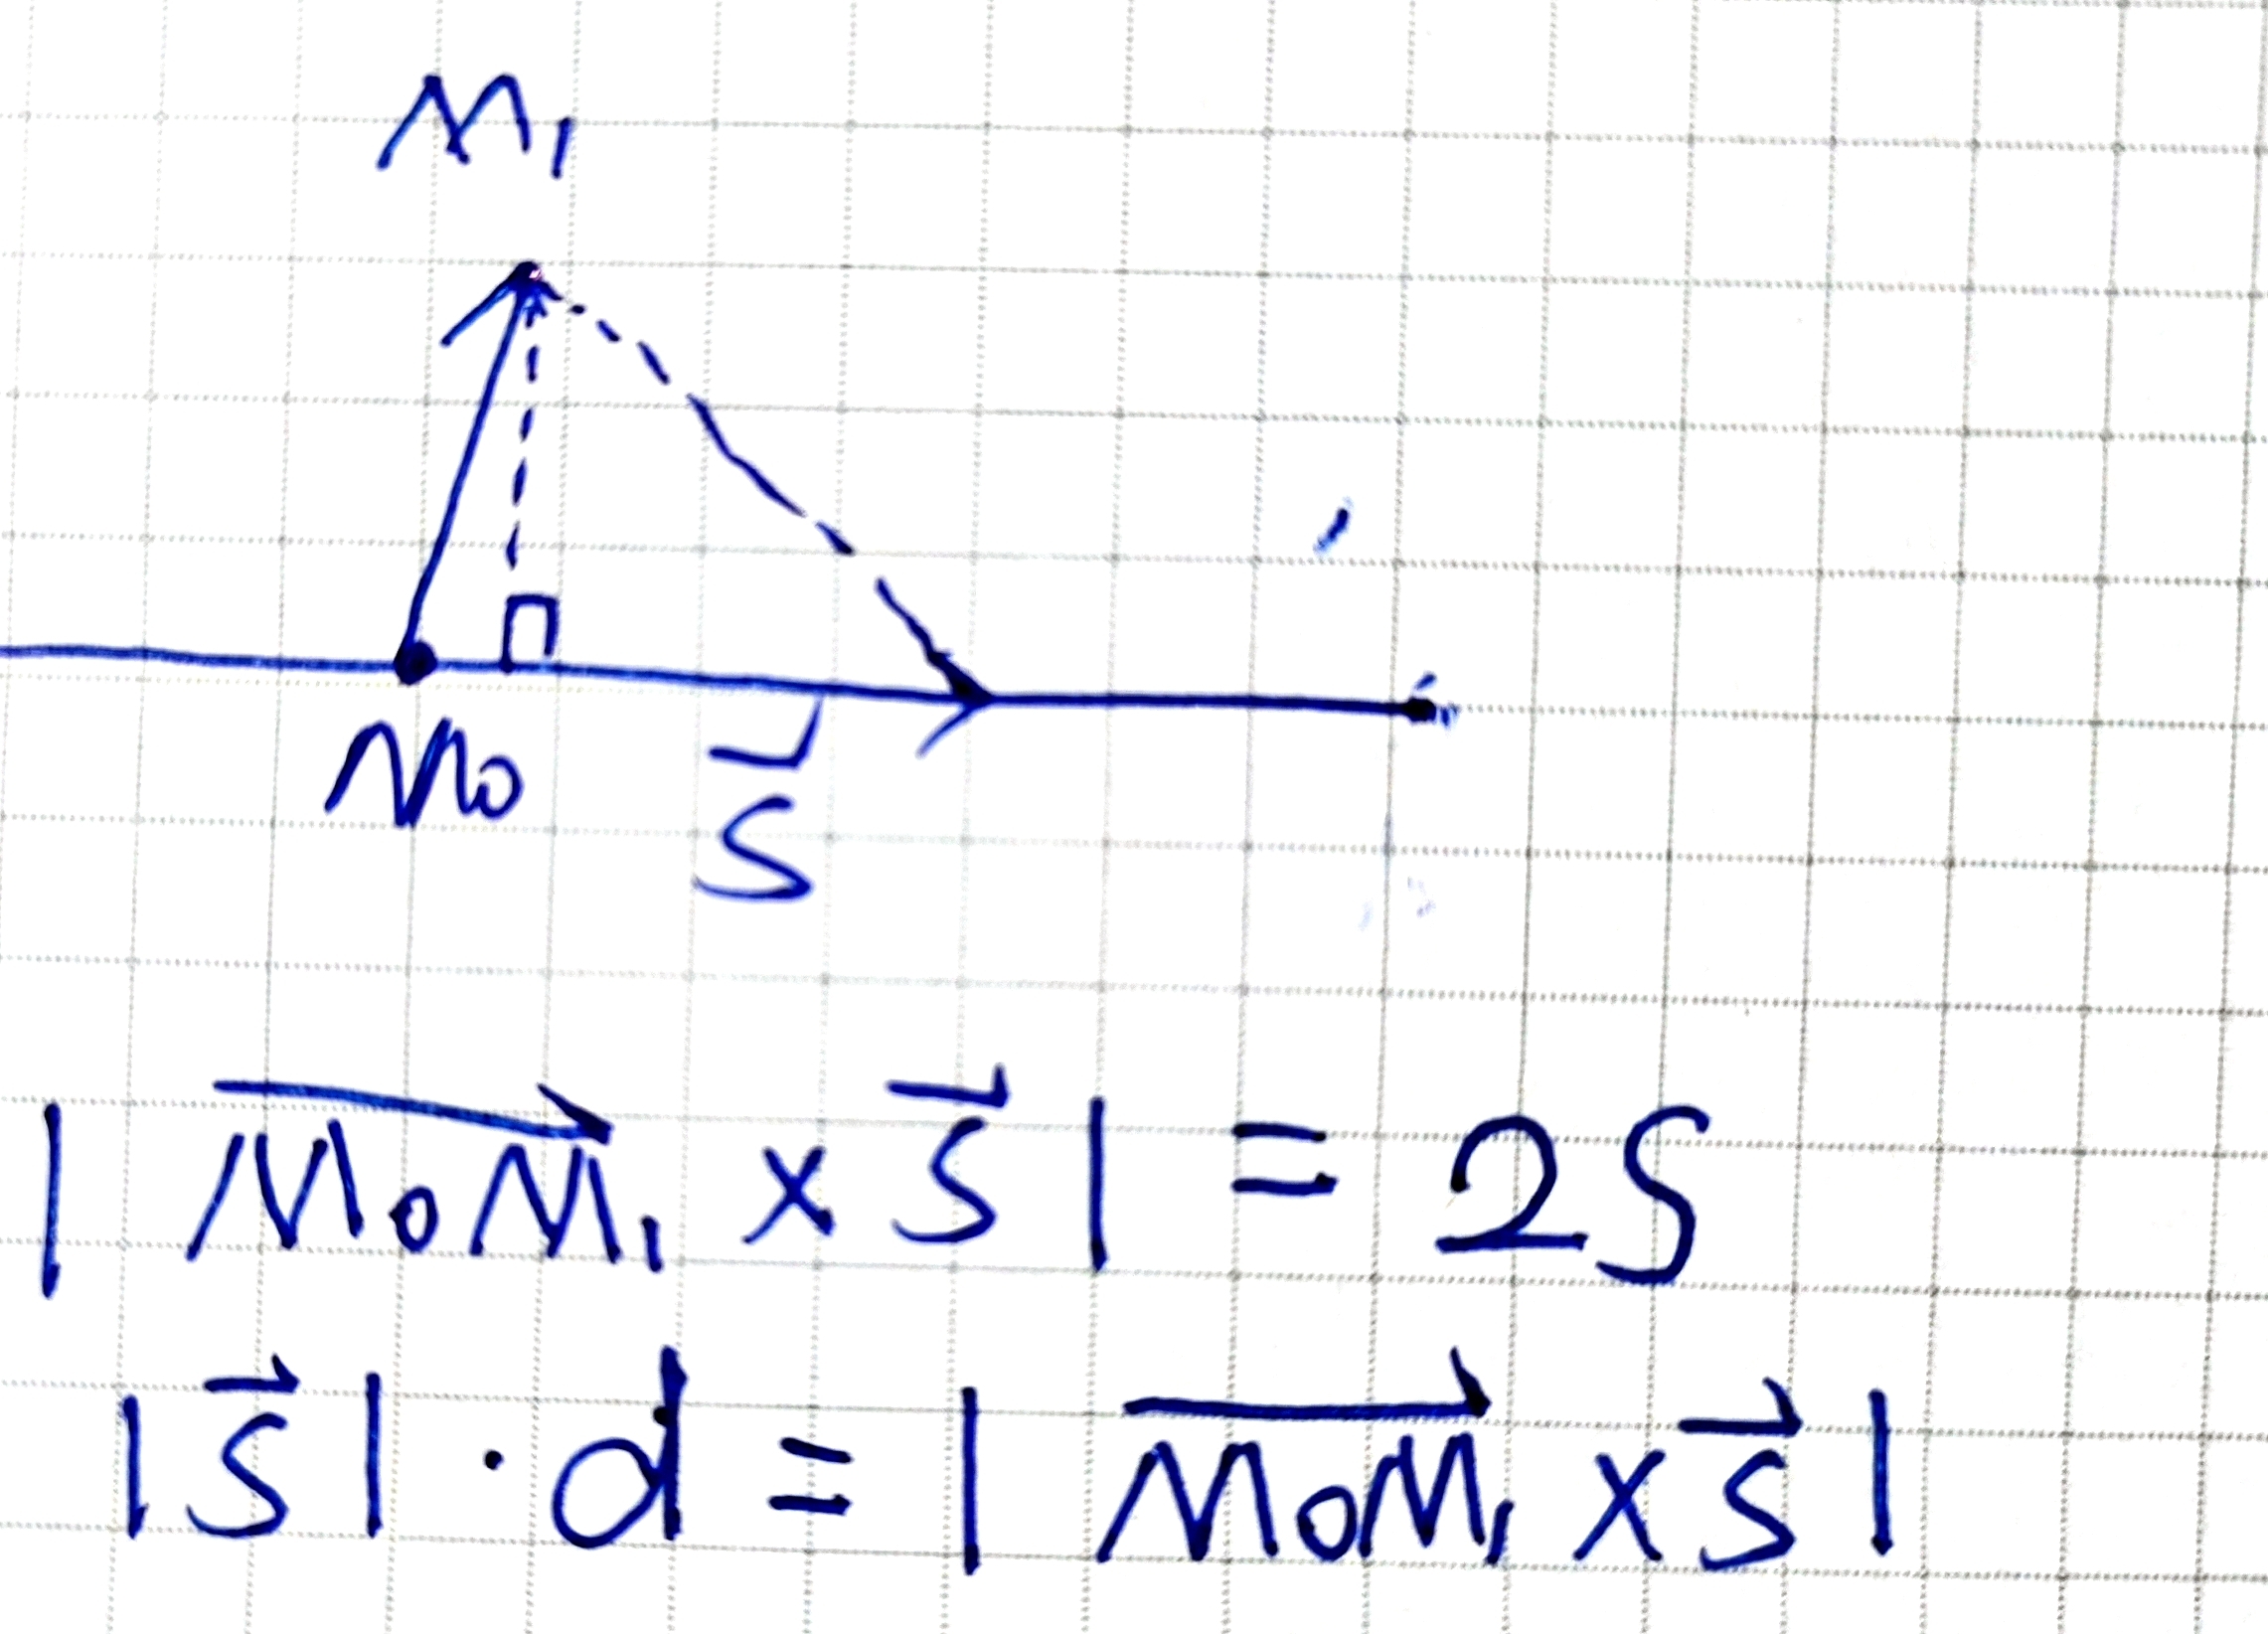 M₁
M₀
s⃗
| M₀M₁⃗ × s⃗ | = 2S
|s⃗| · d = | M₀M₁⃗ × s⃗ |